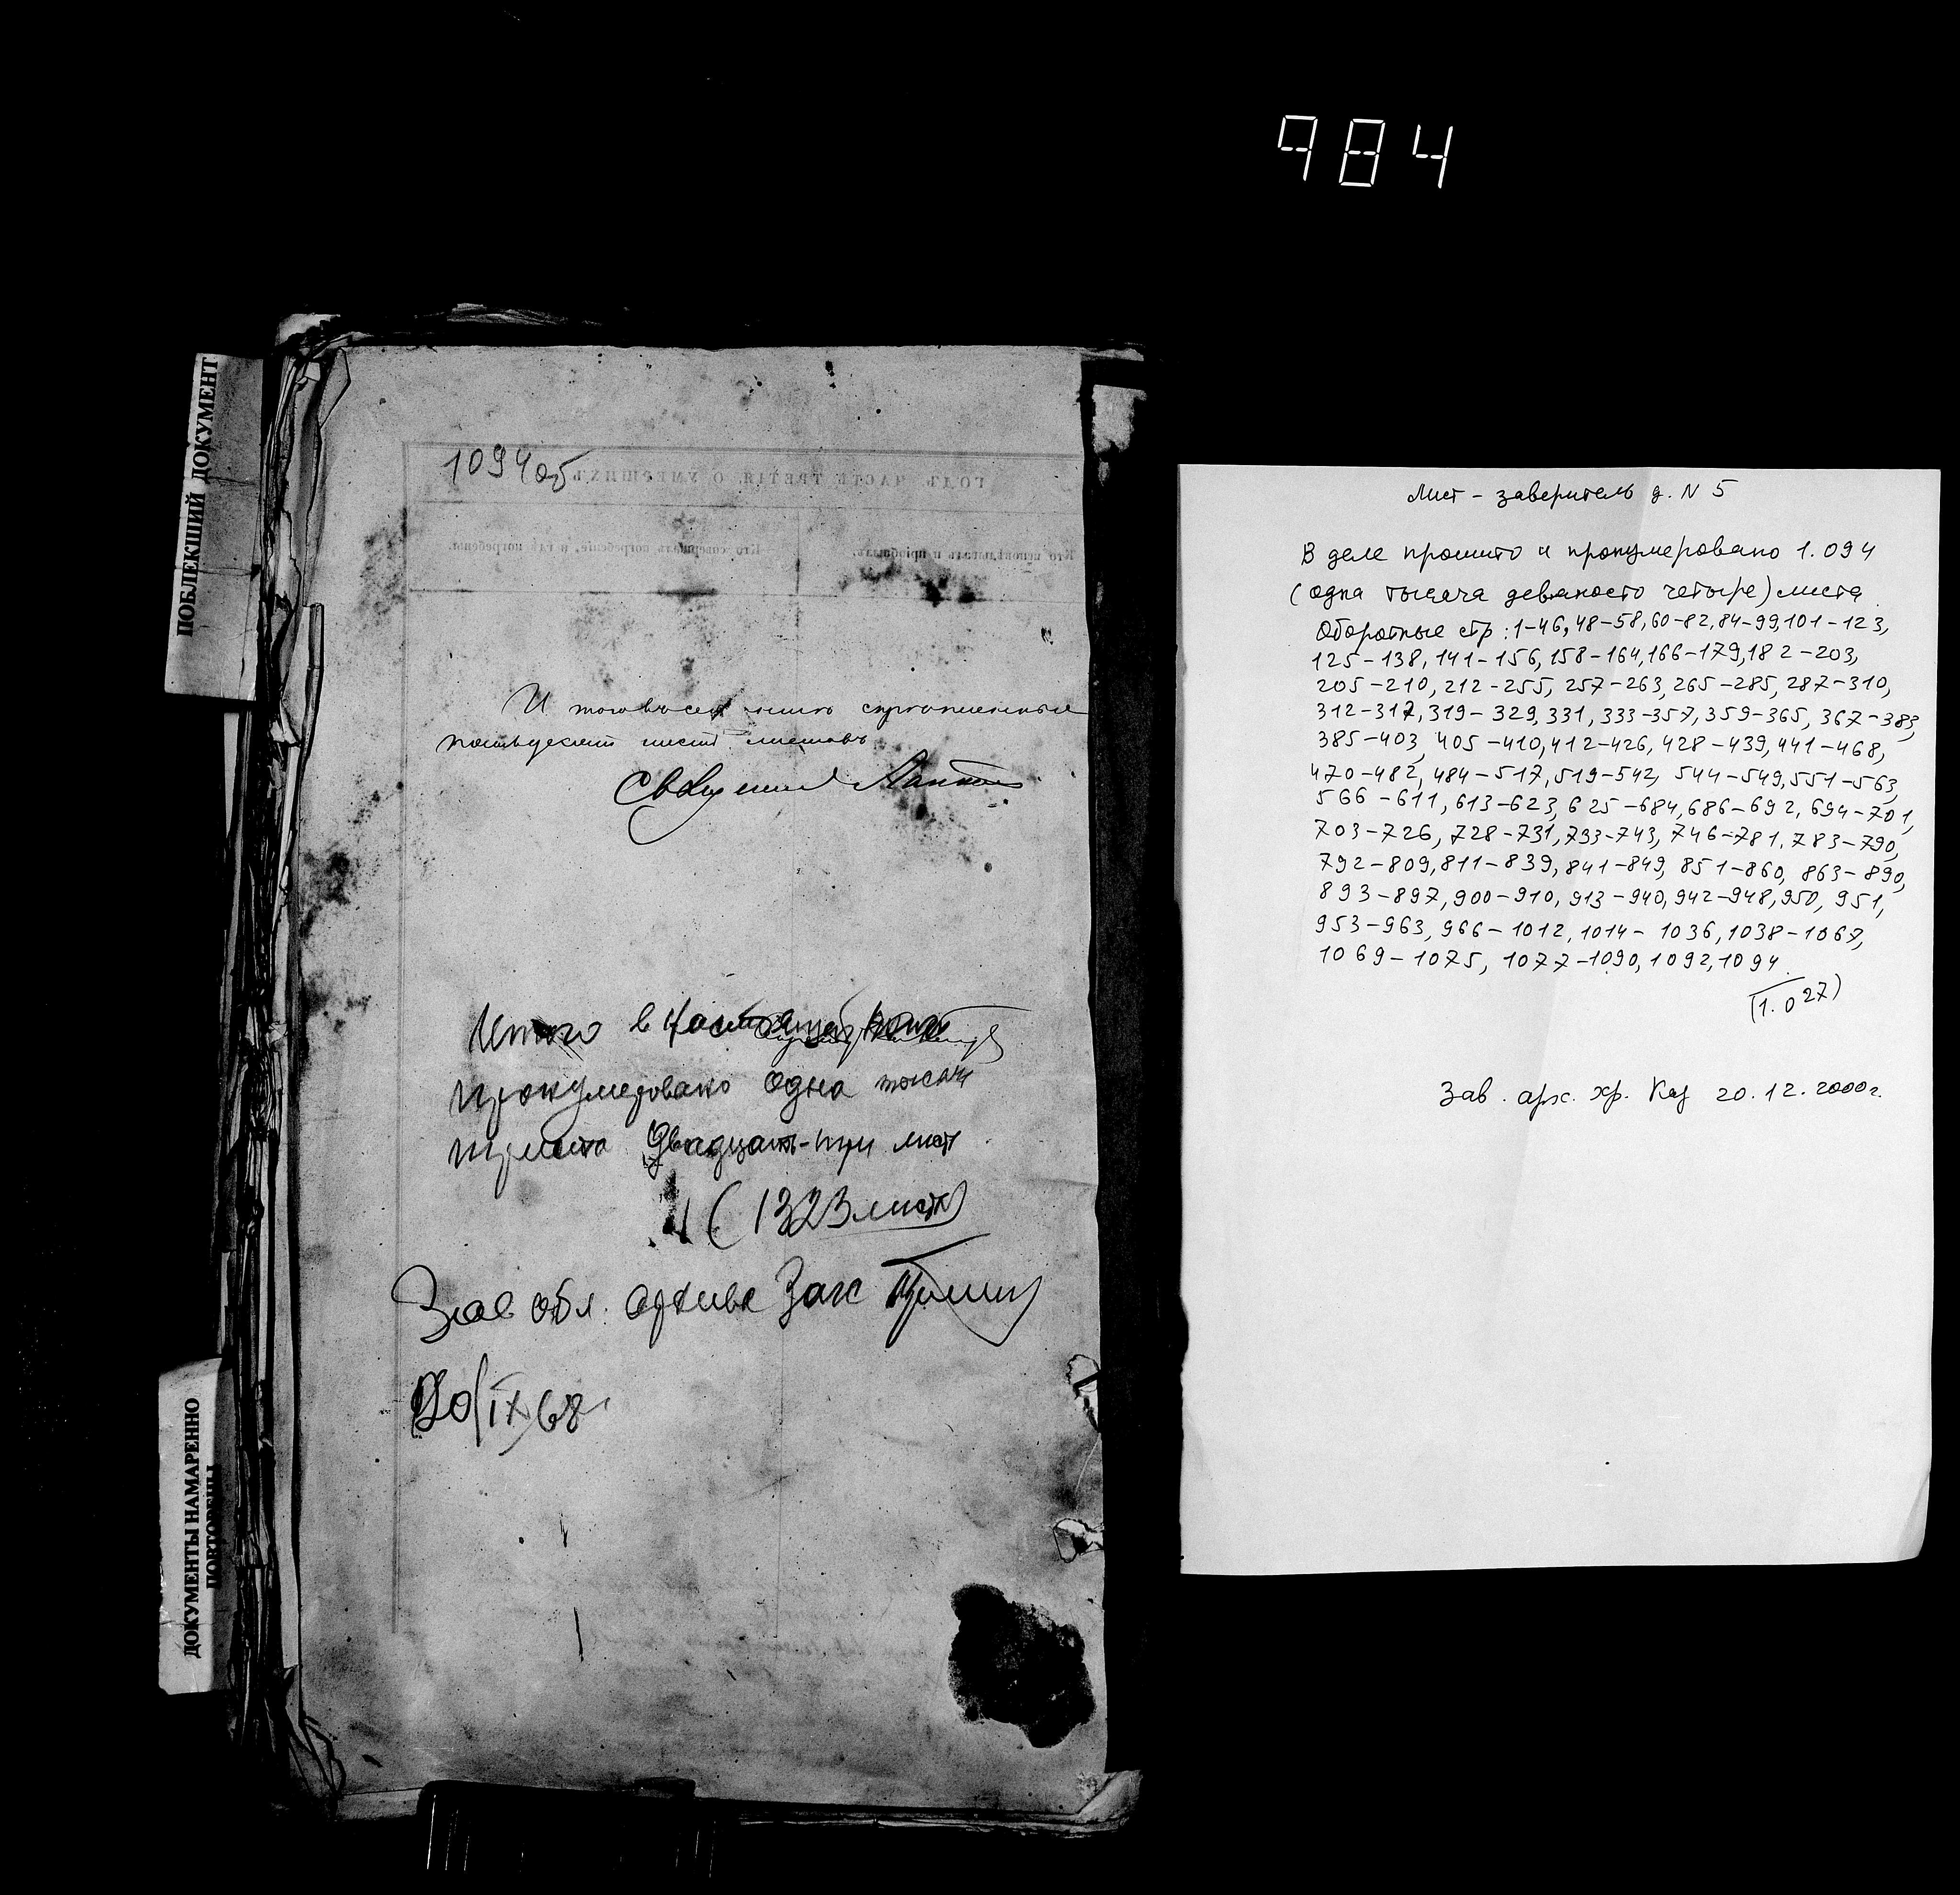 984
ПОБЛЕКШИЙ ДОКУМЕНТ
ДОКУМЕНТЫ НАМАРЕННО
ПОВТОРЕНЫ
1094об
ГОДЪ ЧАСТЬ ТРЕТІЯ О УМЕРШИХЪ
Кто исповѣдывалъ и пріобщалъ.
Кто совершалъ погребеніе, и гдѣ погребены.
И того въ сей
листовъ
Священник
Итого в настоящей
пронумеровано одна тысяча
триста двадцать-три лист
(1323 листа)
Зав обл. архива Загс
20/IX 68
Лист - заверитель д. N 5
В деле прошито и пронумеровано 1.094
(одна тысяча девяносто четыре) листа.
Оборотные стр: 1-46, 48-58, 60-82, 84-99, 101-123,
125-138, 141-156, 158-164, 166-179, 182-203,
205-210, 212-255, 257-263, 265-285, 287-310,
312-317, 319-329, 331, 333-357, 359-365, 367-383,
385-403, 405-410, 412-426, 428-439, 441-468,
470-482, 484-517, 519-542, 544-549, 551-563,
566-611, 613-623, 625-684, 686-692, 694-701,
703-726, 728-731, 733-743, 746-781, 783-790,
792-809, 811-839, 841-849, 851-860, 863-890,
893-897, 900-910, 913-940, 942-948, 950, 951,
953-963, 966-1012, 1014-1036, 1038-1067,
1069-1075, 1077-1090, 1092, 1094.
(1.027)
Зав. арх. хр. 20.12.2000г.